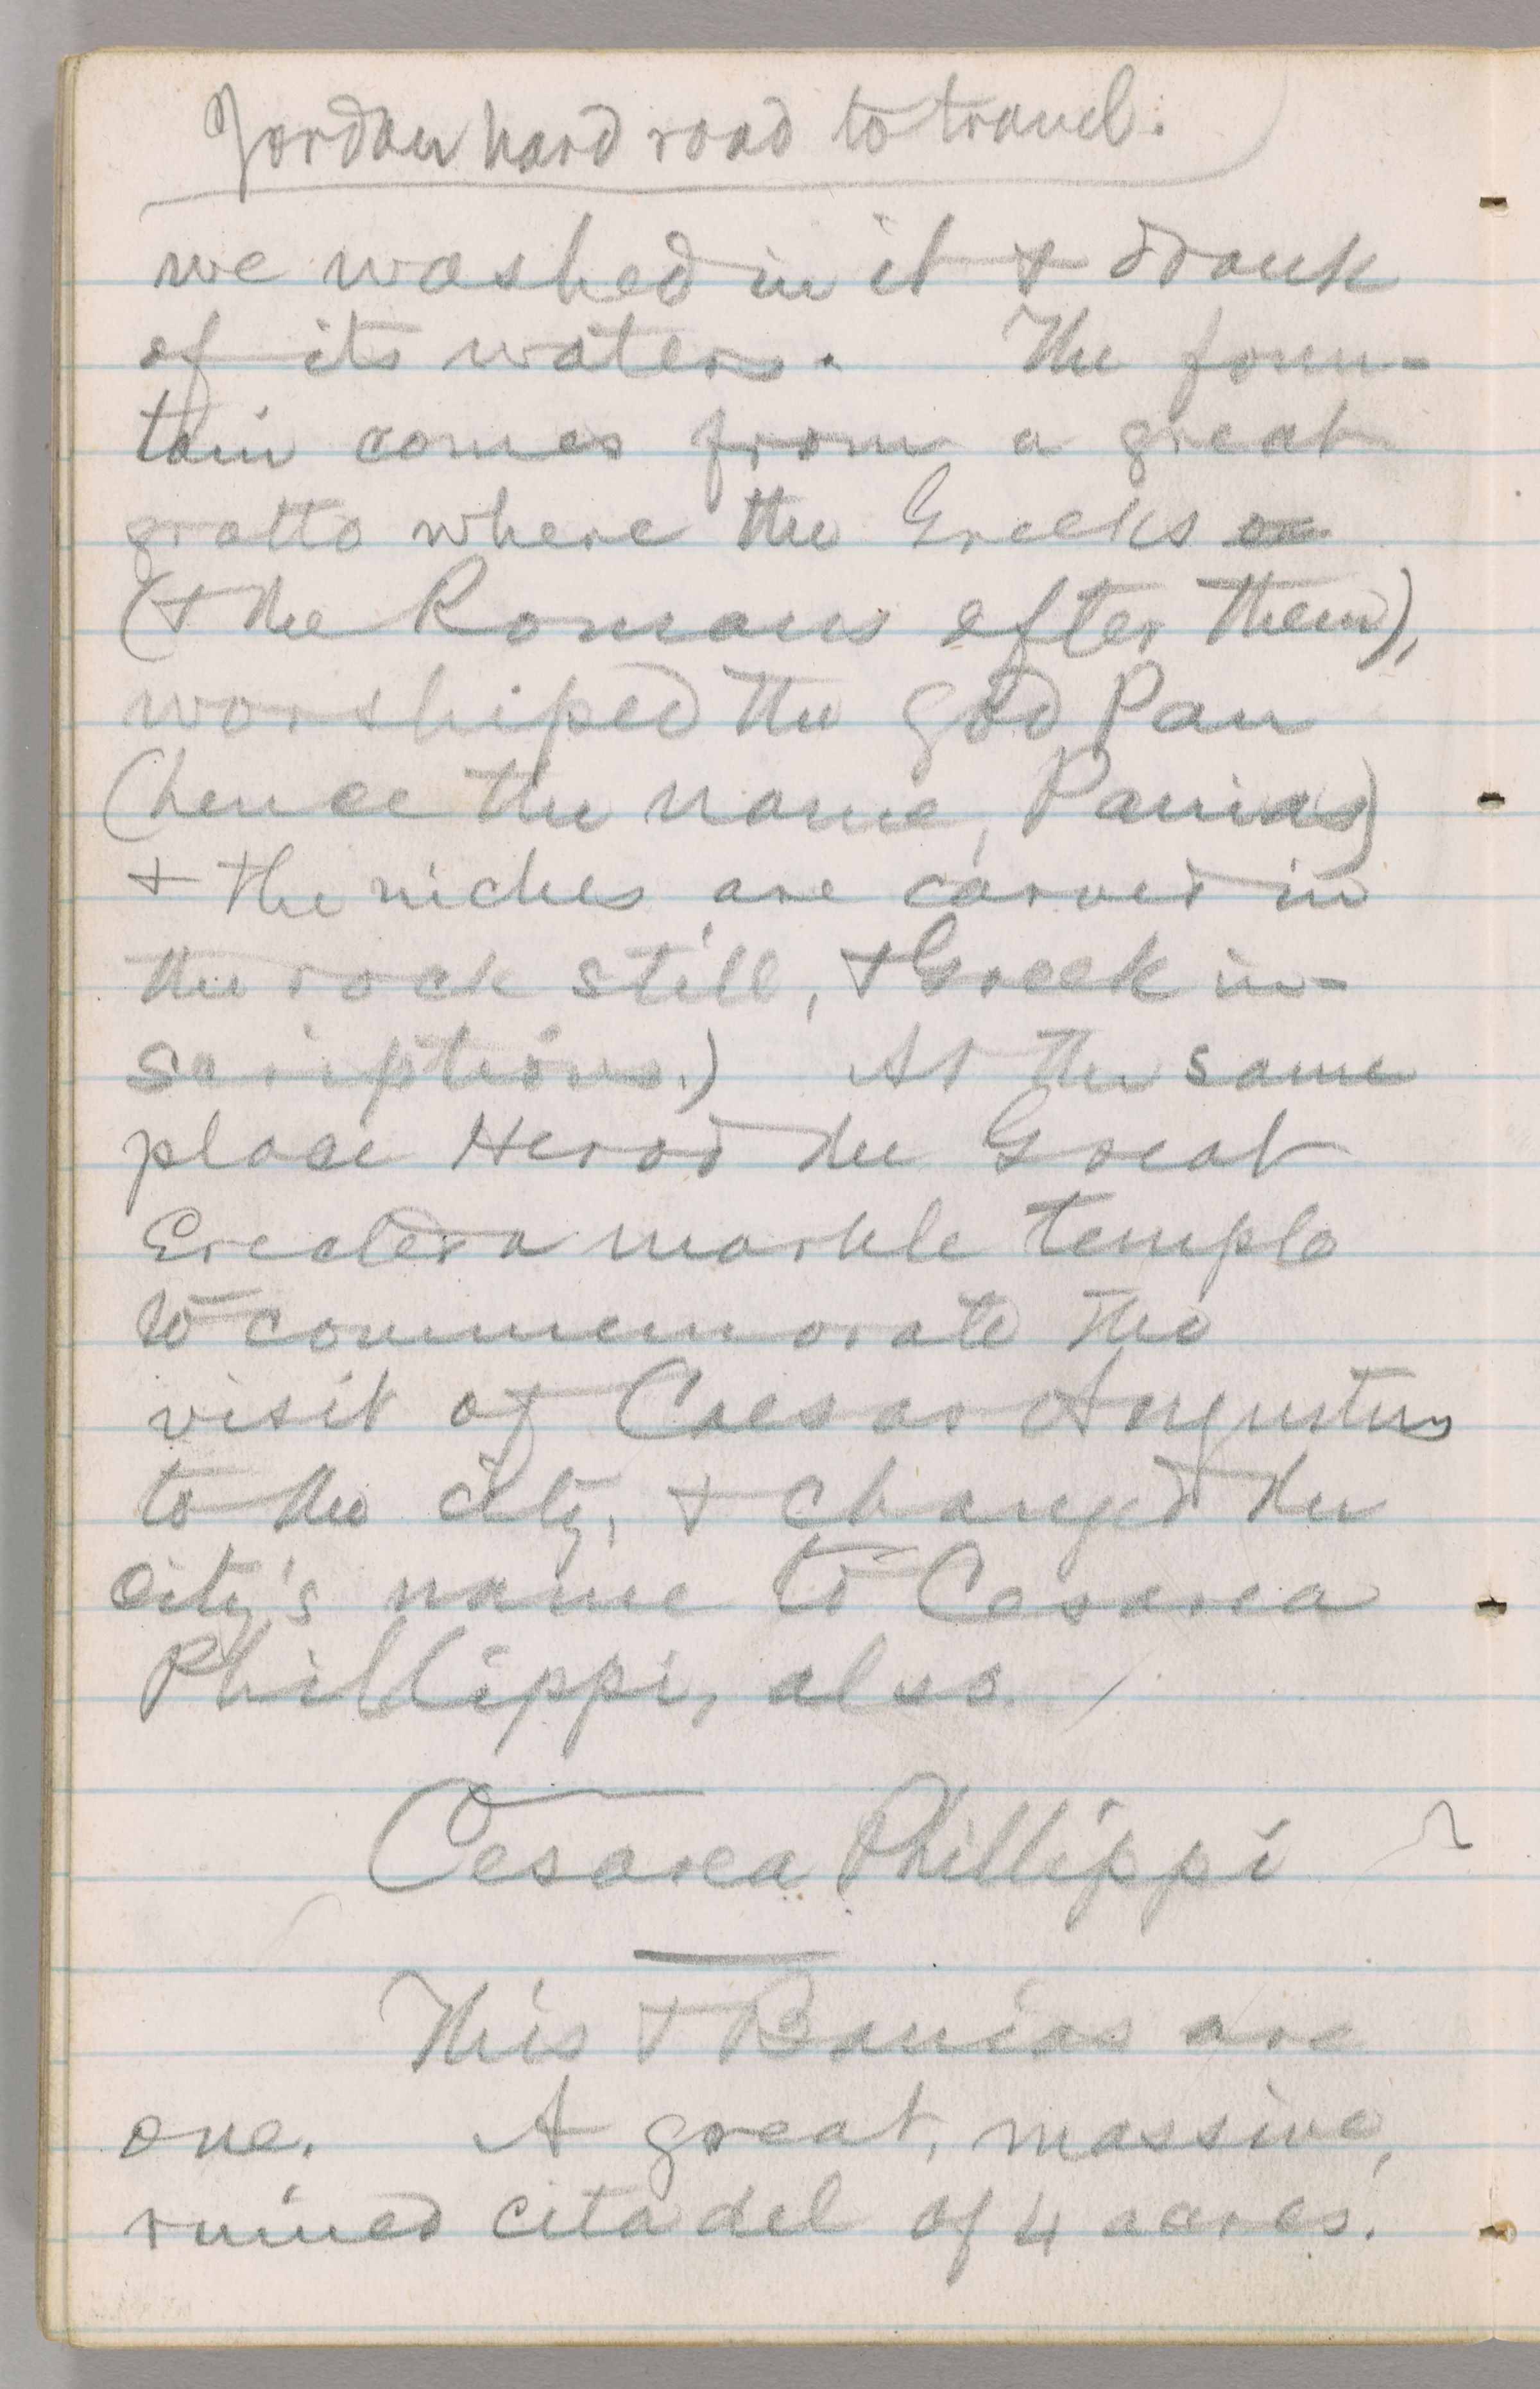 Jordan hard road to travel.
we washed in it & drank
of its waters. The foun-
tain comes from a great
grotto where the Greeks
(& the Romans after them),
worshiped the god Pan
(hence the name, Panias)
& the niches are carved in
the rock still, & Greek in-
scriptions.) At the same
place Herod the Great
Erected a marble temple
to commemorate the
visit of Caesar Augustus
to the city, & changed the
city's name to Cesarea
Phillippi, also.
Cesarea Phillippi
This & Banias are
one. A great, massive,
ruined citadel of 4 acres.